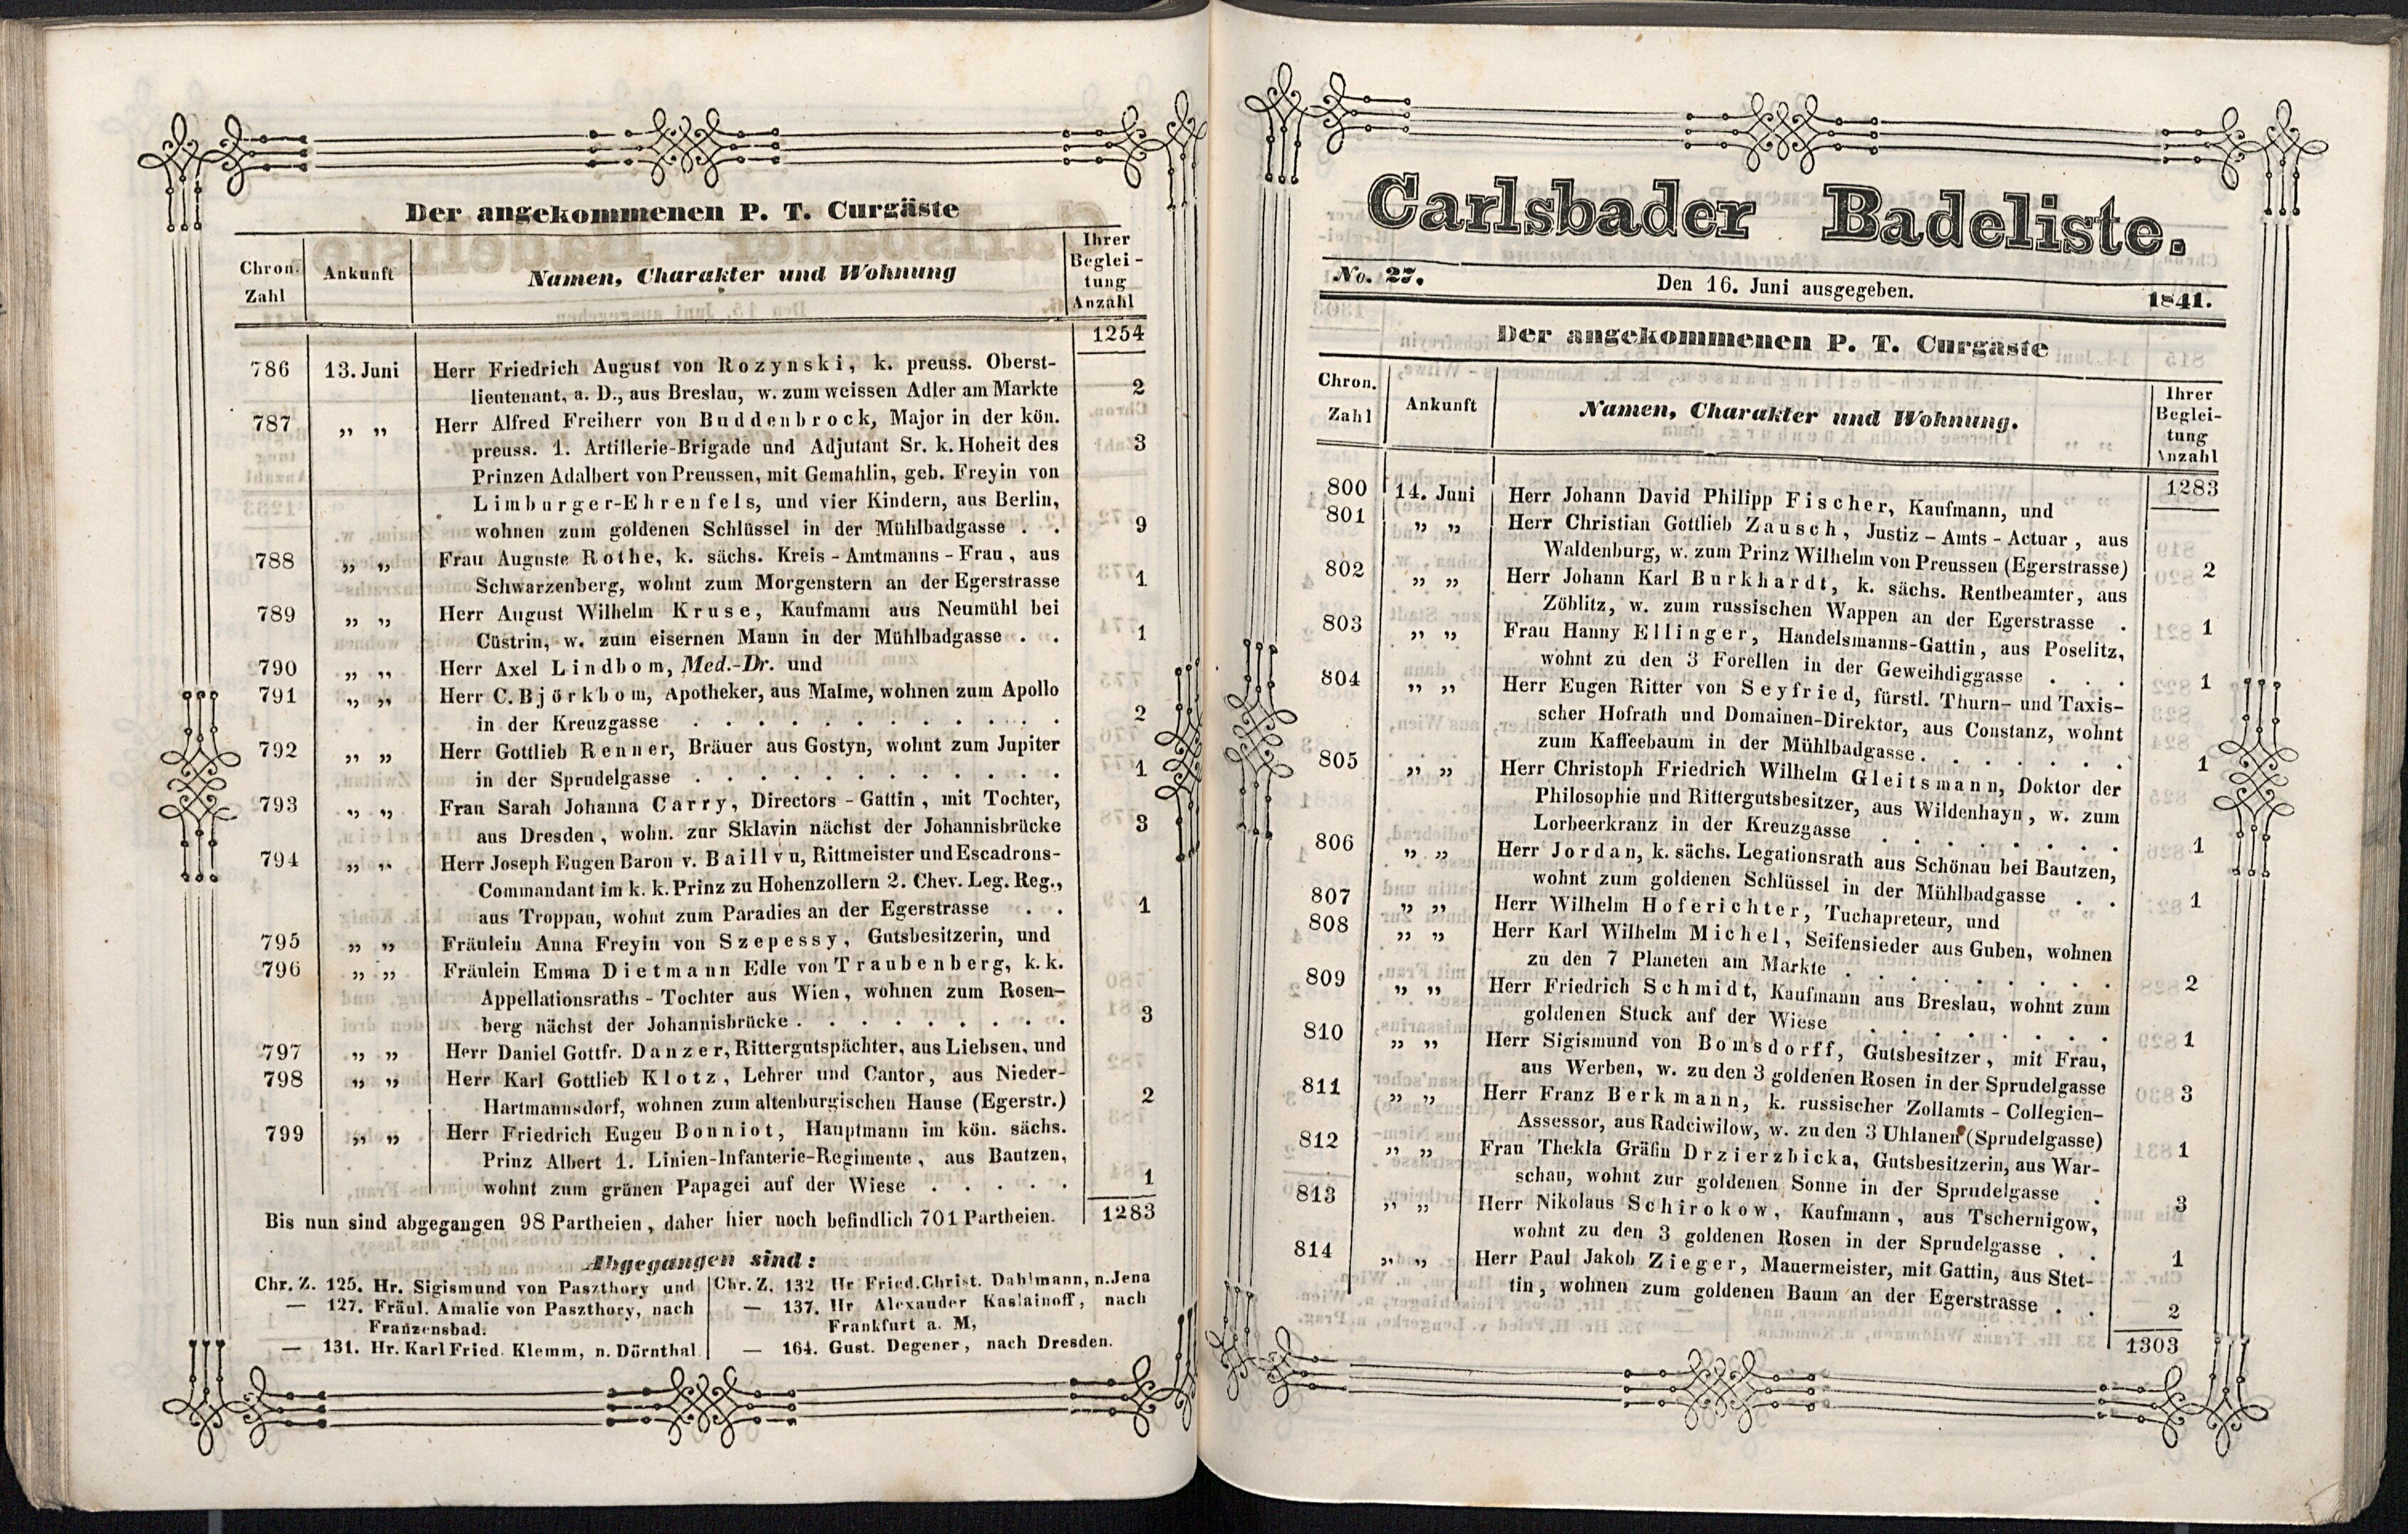 Der angekommenen P. T. Curgäste
Chron. Zahl
Ankunft
Namen, Charakter und Wohnung
Ihrer Beglei-
tung
Anzahl
1254
786 13. Juni Herr Friedrich August von Rozynski, k. preuss. Oberst-
lieutenant, a. D., aus Breslau, w. zum weissen Adler am Markte 2
787 „ „ Herr Alfred Freiherr von Buddenbrock, Major in der kön.
preuss. 1. Artillerie-Brigade und Adjutant Sr. k. Hoheit des 3
Prinzen Adalbert von Preussen, mit Gemahlin, geb. Freyin von
Limburger-Ehrenfels, und vier Kindern, aus Berlin,
wohnen zum goldenen Schlüssel in der Mühlbadgasse . . 9
788 „ „ Frau Auguste Rothe, k. sächs. Kreis-Amtmanns-Frau, aus
Schwarzenberg, wohnt zum Morgenstern an der Egerstrasse 1
789 „ „ Herr August Wilhelm Kruse, Kaufmann aus Neumühl bei
Cüstrin, w. zum eisernen Mann in der Mühlbadgasse . . 1
790 „ „ Herr Axel Lindbom, Med.-Dr. und
791 „ „ Herr C. Björkbom, Apotheker, aus Malme, wohnen zum Apollo
in der Kreuzgasse . . . . . . . . . . . . 2
792 „ „ Herr Gottlieb Renner, Bräuer aus Gostyn, wohnt zum Jupiter
in der Sprudelgasse . . . . . . . . . . . . 1
793 „ „ Frau Sarah Johanna Carry, Directors-Gattin, mit Tochter,
aus Dresden, wohn. zur Sklavin nächst der Johannisbrücke 3
794 „ „ Herr Joseph Eugen Baron v. Baillvu, Rittmeister und Escadrons-
Commandant im k. k. Prinz zu Hohenzollern 2. Chev. Leg. Reg.,
aus Troppau, wohnt zum Paradies an der Egerstrasse . . 1
795 „ „ Fräulein Anna Freyin von Szepessy, Gutsbesitzerin, und
796 „ „ Fräulein Emma Dietmann Edle von Traubenberg, k. k.
Appellationsraths-Tochter aus Wien, wohnen zum Rosen-
berg nächst der Johannisbrücke . . . . . . . . . 3
797 „ „ Herr Daniel Gottfr. Danzer, Rittergutspächter, aus Liebsen, und
798 „ „ Herr Karl Gottlieb Klotz, Lehrer und Cantor, aus Nieder-
Hartmannsdorf, wohnen zum altenburgischen Hause (Egerstr.) 2
799 „ „ Herr Friedrich Eugen Bonniot, Hauptmann im kön. sächs.
Prinz Albert 1. Linien-Infanterie-Regimente, aus Bautzen,
wohnt zum grünen Papagei auf der Wiese . . . . . 1
Bis nun sind abgegangen 98 Partheien, daher hier noch befindlich 701 Partheien. 1283
Abgegangen sind:
Chr. Z. 125. Hr. Sigismund von Paszthory und
— 127. Fräul. Amalie von Paszthory, nach
Franzensbad.
— 131. Hr. Karl Fried. Klemm, n. Dörnthal
Chr. Z. 132 Hr Fried. Christ. Dahlmann, n. Jena
— 137. Hr Alexander Kaslainoff, nach
Frankfurt a. M,
— 164. Gust. Degener, nach Dresden.
Carlsbader Badeliste.
No. 27. Den 16. Juni ausgegeben. 1841.
Der angekommenen P. T. Curgäste
Chron. Zahl
Ankunft
Namen, Charakter und Wohnung.
Ihrer
Beglei-
tung
Anzahl
1283
800 14. Juni Herr Johann David Philipp Fischer, Kaufmann, und
801 „ „ Herr Christian Gottlieb Zausch, Justiz-Amts-Actuar, aus
Waldenburg, w. zum Prinz Wilhelm von Preussen (Egerstrasse) 2
802 „ „ Herr Johann Karl Burkhardt, k. sächs. Rentbeamter, aus
Zöblitz, w. zum russischen Wappen an der Egerstrasse . 1
803 „ „ Frau Hanny Ellinger, Handelsmanns-Gattin, aus Poselitz,
wohnt zu den 3 Forellen in der Geweihdiggasse . . . 1
804 „ „ Herr Eugen Ritter von Seyfried, fürstl. Thurn- und Taxis-
scher Hofrath und Domainen-Direktor, aus Constanz, wohnt
zum Kaffeebaum in der Mühlbadgasse . . . . . . . 1
805 „ „ Herr Christoph Friedrich Wilhelm Gleitsmann, Doktor der
Philosophie und Rittergutsbesitzer, aus Wildenhayn, w. zum
Lorbeerkranz in der Kreuzgasse . . . . . . . . 1
806 „ „ Herr Jordan, k. sächs. Legationsrath aus Schönau bei Bautzen,
wohnt zum goldenen Schlüssel in der Mühlbadgasse . . 1
807 „ „ Herr Wilhelm Hoferichter, Tuchapreteur, und
808 „ „ Herr Karl Wilhelm Michel, Seifensieder aus Guben, wohnen
zu den 7 Planeten am Markte . . . . . . . . . 2
809 „ „ Herr Friedrich Schmidt, Kaufmann aus Breslau, wohnt zum
goldenen Stuck auf der Wiese . . . . . . . . 1
810 „ „ Herr Sigismund von Bomsdorff, Gutsbesitzer, mit Frau,
aus Werben, w. zu den 3 goldenen Rosen in der Sprudelgasse 3
811 „ „ Herr Franz Berkmann, k. russischer Zollamts-Collegien-
Assessor, aus Radciwilow, w. zu den 3 Uhlanen (Sprudelgasse) 1
812 „ „ Frau Thekla Gräfin Drzierzbicka, Gutsbesitzerin, aus War-
schau, wohnt zur goldenen Sonne in der Sprudelgasse . 3
813 „ „ Herr Nikolaus Schirokow, Kaufmann, aus Tschernigow,
wohnt zu den 3 goldenen Rosen in der Sprudelgasse . . 1
814 „ „ Herr Paul Jakob Zieger, Mauermeister, mit Gattin, aus Stet-
tin, wohnen zum goldenen Baum an der Egerstrasse . . 2
1303